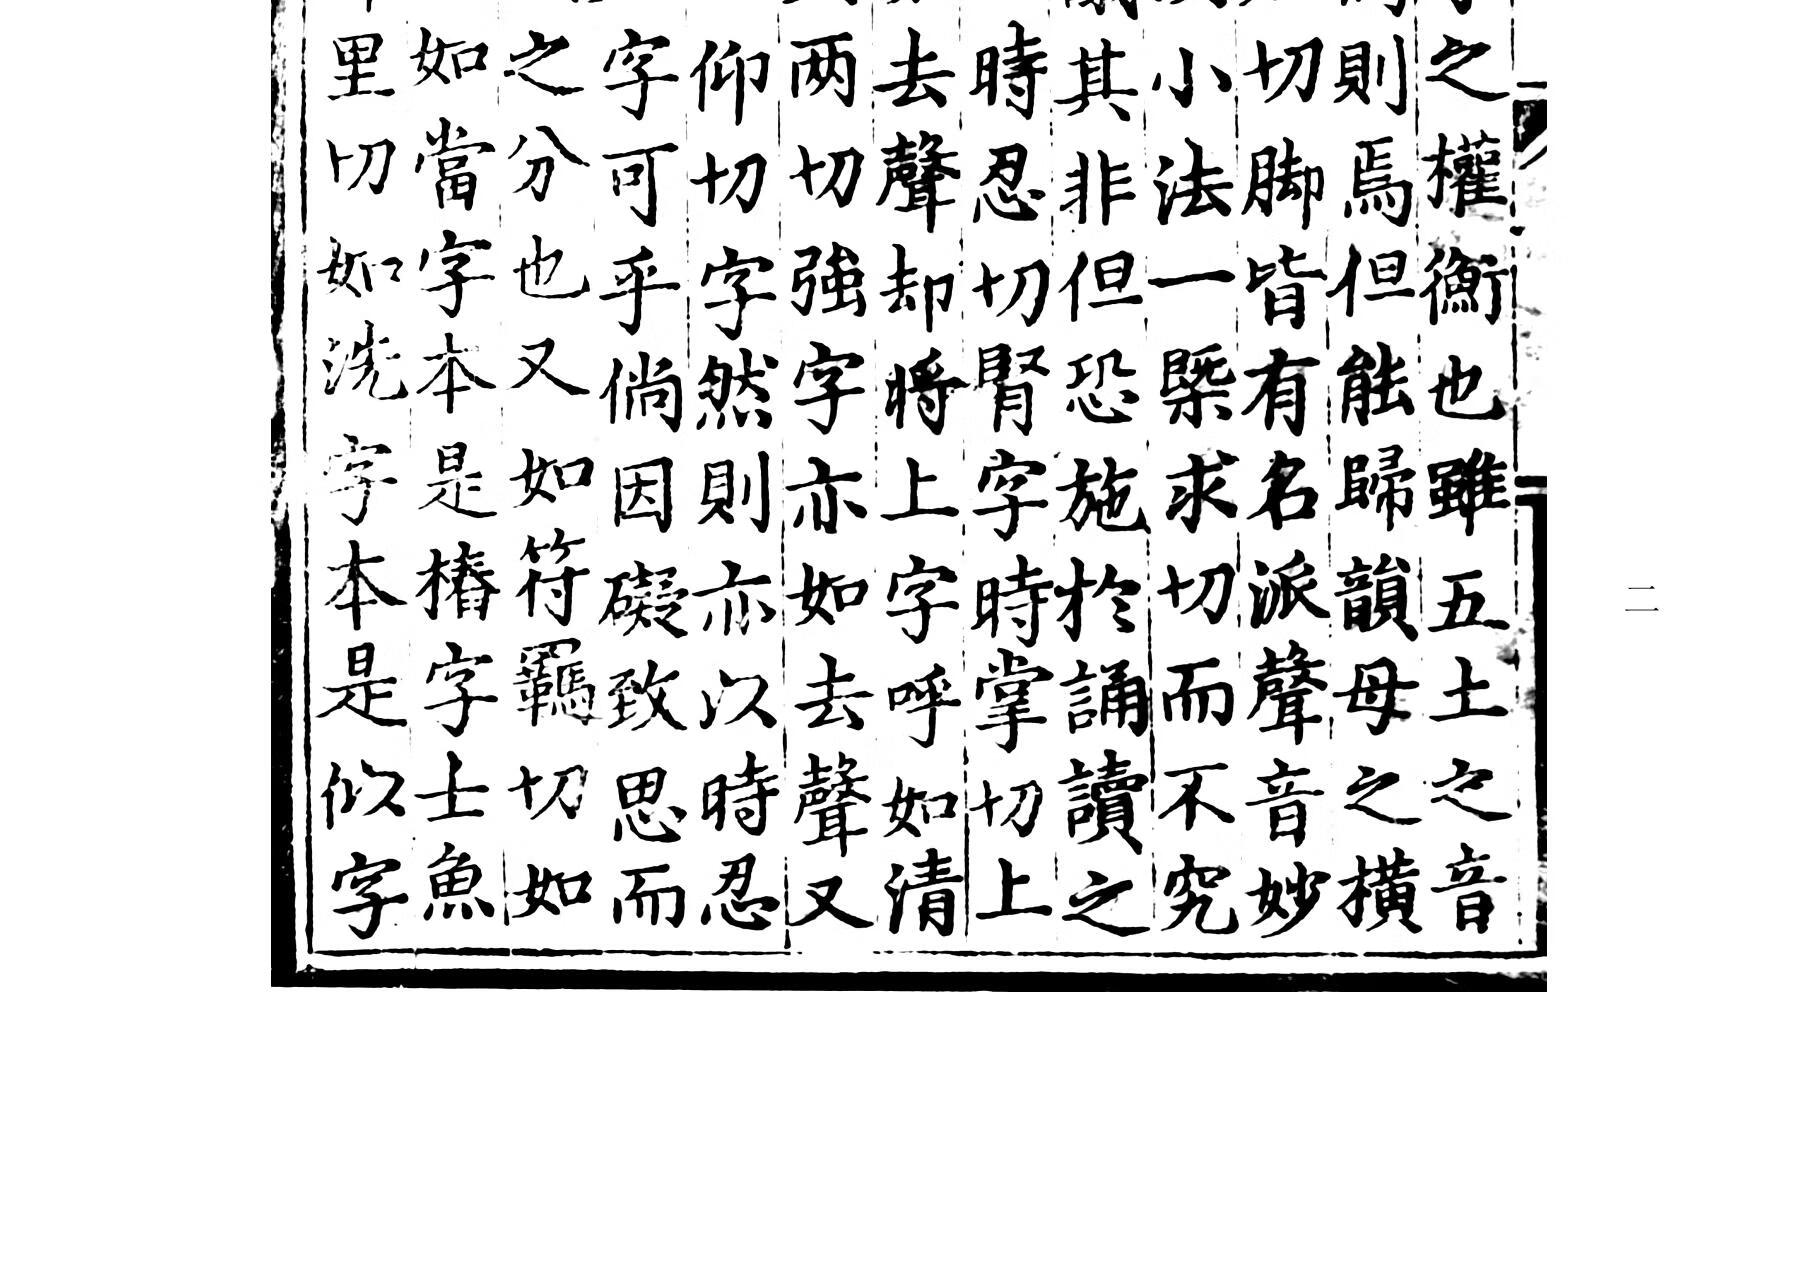 之權衡也雖五土之音
則焉但能歸韻母之橫
切脚皆有名派聲音妙
小法一槩求切而不究
其非但恐施於誦讀之
時忍切腎字時掌切上
去聲却將上字呼如清
两切強字亦如去聲又
仰切字然則亦以時忍
字可乎倘因礙致思而
之分也又如符羈切如
如當字本是樁字士魚
里切如洗字本是似字
二